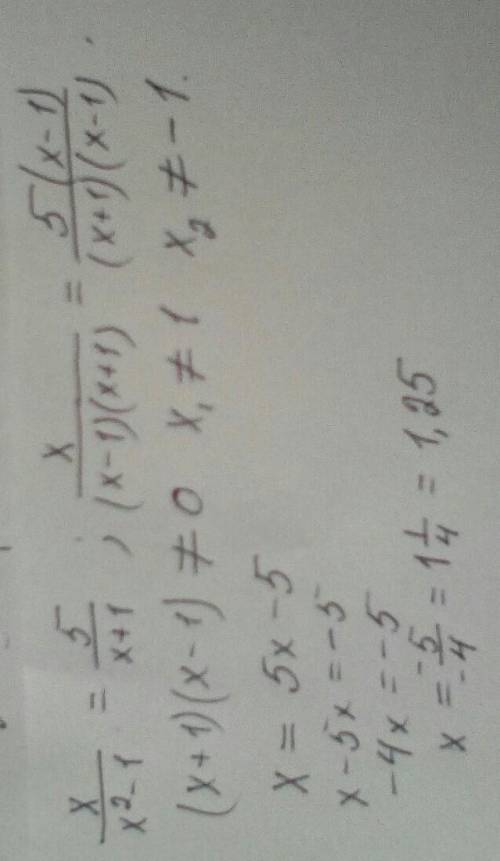 x/(x²-1) = 5/(x+1) ; x/((x-1)(x+1)) = 5(x-1)/((x+1)(x-1)) .
(x+1)(x-1) ≠ 0 x₁ ≠ 1 x₂ ≠ -1.
x = 5x-5
x-5x = -5
-4x = -5
x = -5/-4 = 1 1/4 = 1,25